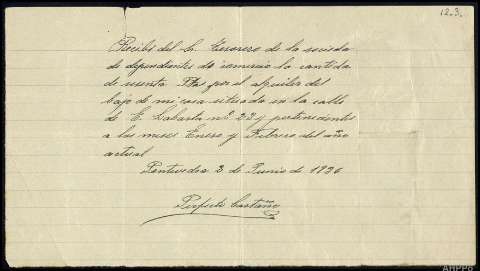 12.3.
Recibí del C. Tesorero de la socieda
de dependientes de comercio la cantida
de sesenta Ptas por el alquiler del
bajo de mi casa situado en la calle
de E. Labarta nº 22 y pertenecientes
a los meses Enero y Febrero del año
actual
Pontevedra 2 de Junio de 1936
Castaño
AHPPo